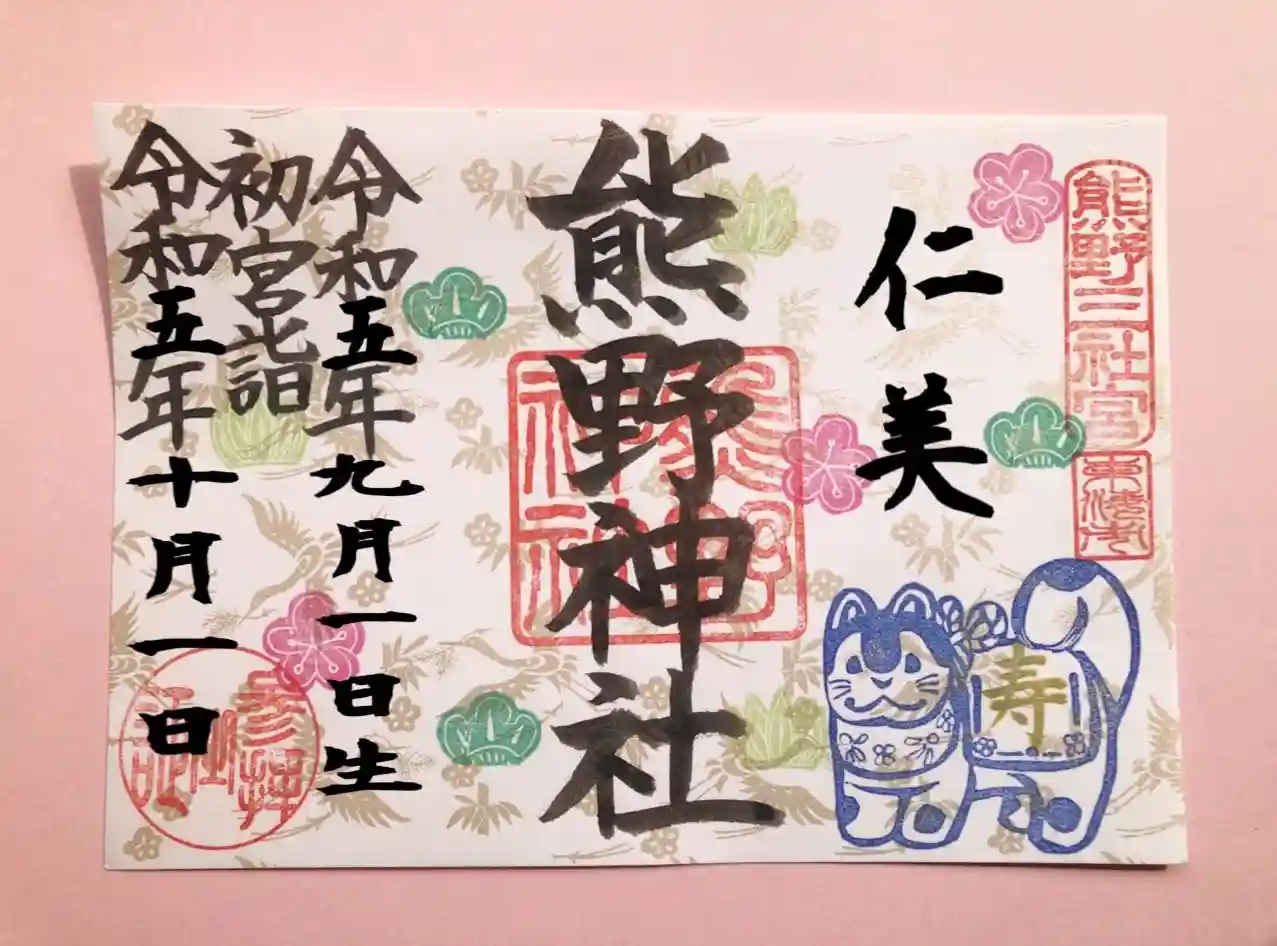 熊野三社宮
仁美
寿
熊野神社
令和五年九月一日生
初宮詣
令和五年十月一日
参拝